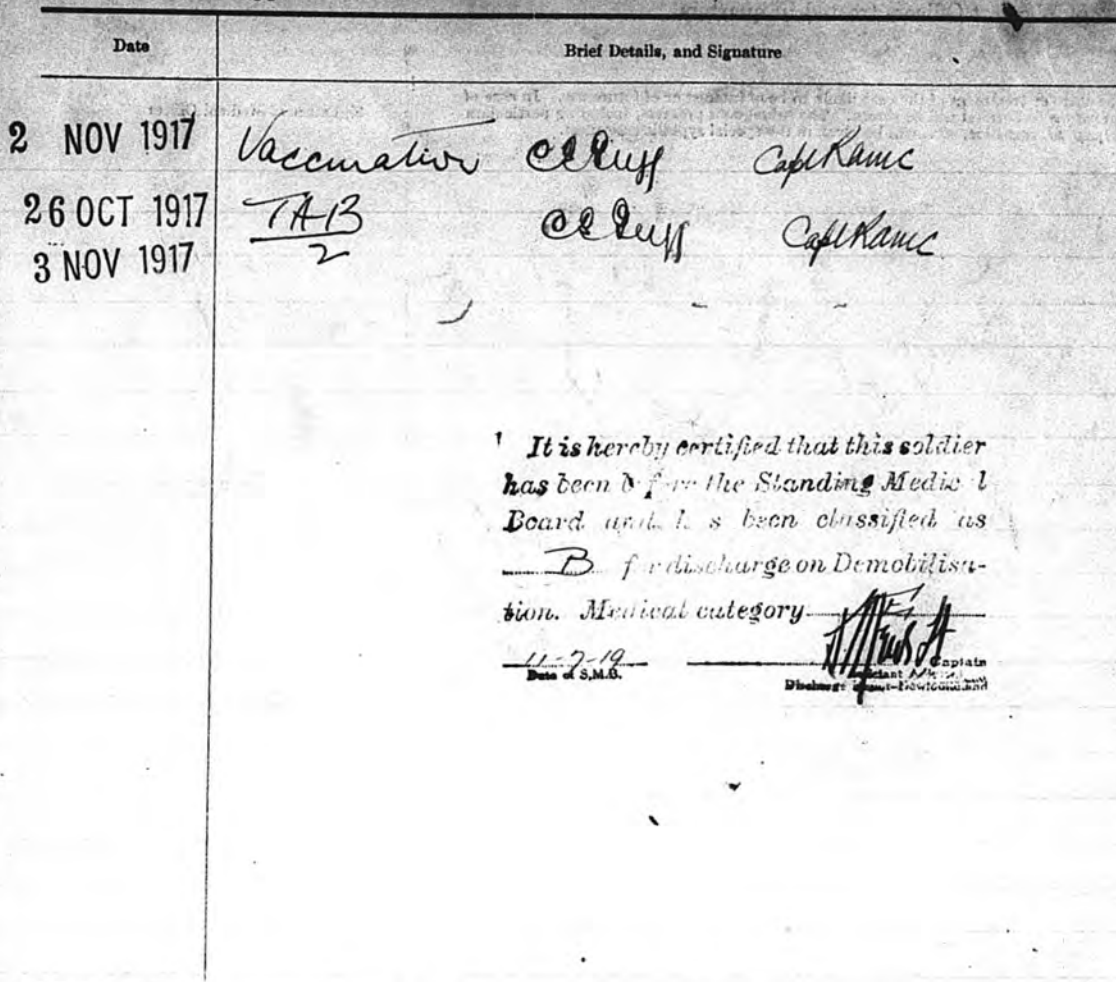 Date Brief Details, and Signature
2 NOV 1917 Vaccination Capt Ramc
26 OCT 1917 TAB Capt Ramc
3 NOV 1917 2
It is hereby certified that this soldier
has been before the Standing Medical
Board and has been classified as
B for discharge on Demobilisa-
tion. Medical category
11-7-19 Captain
Date of S.M.B.
Discharge Depot-Newfoundland